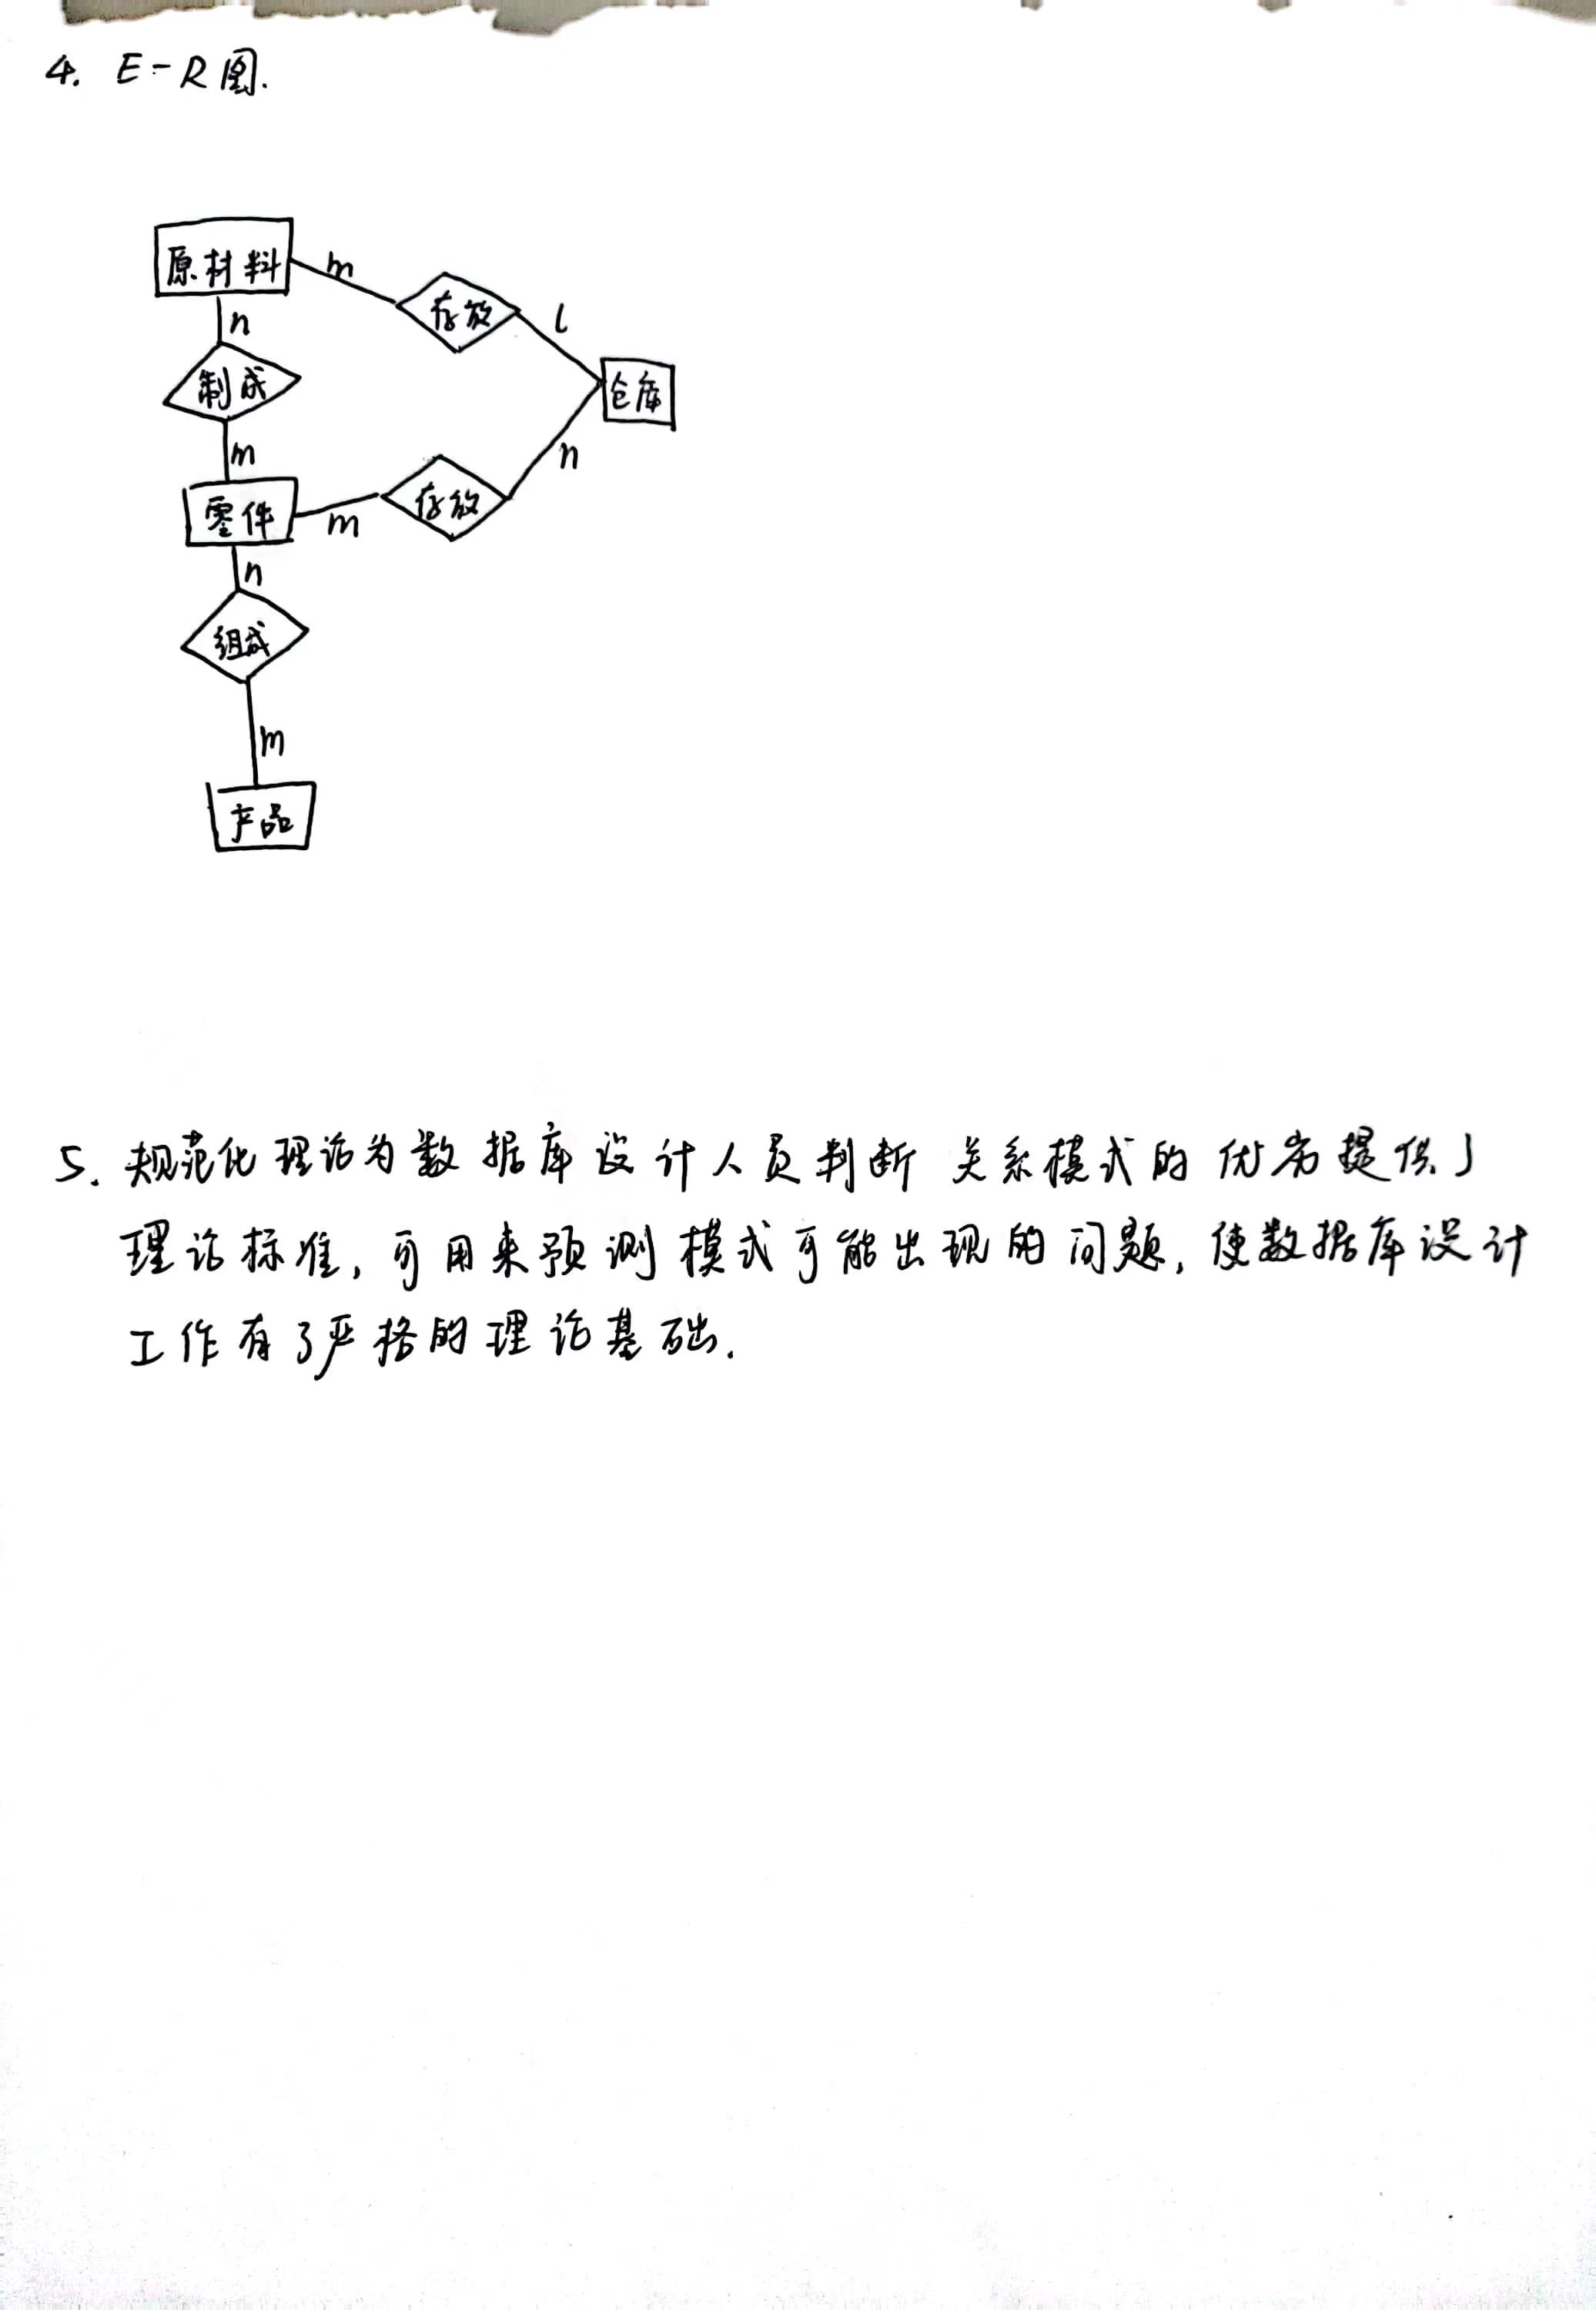 4. E-R图.
原材料
m
存放
l
n
制成
仓库
m
n
零件
m
存放
n
组成
m
产品
5. 规范化理论为数据库设计人员判断关系模式的优劣提供了
理论标准,可用来预测模式可能出现的问题,使数据库设计
工作有了严格的理论基础.